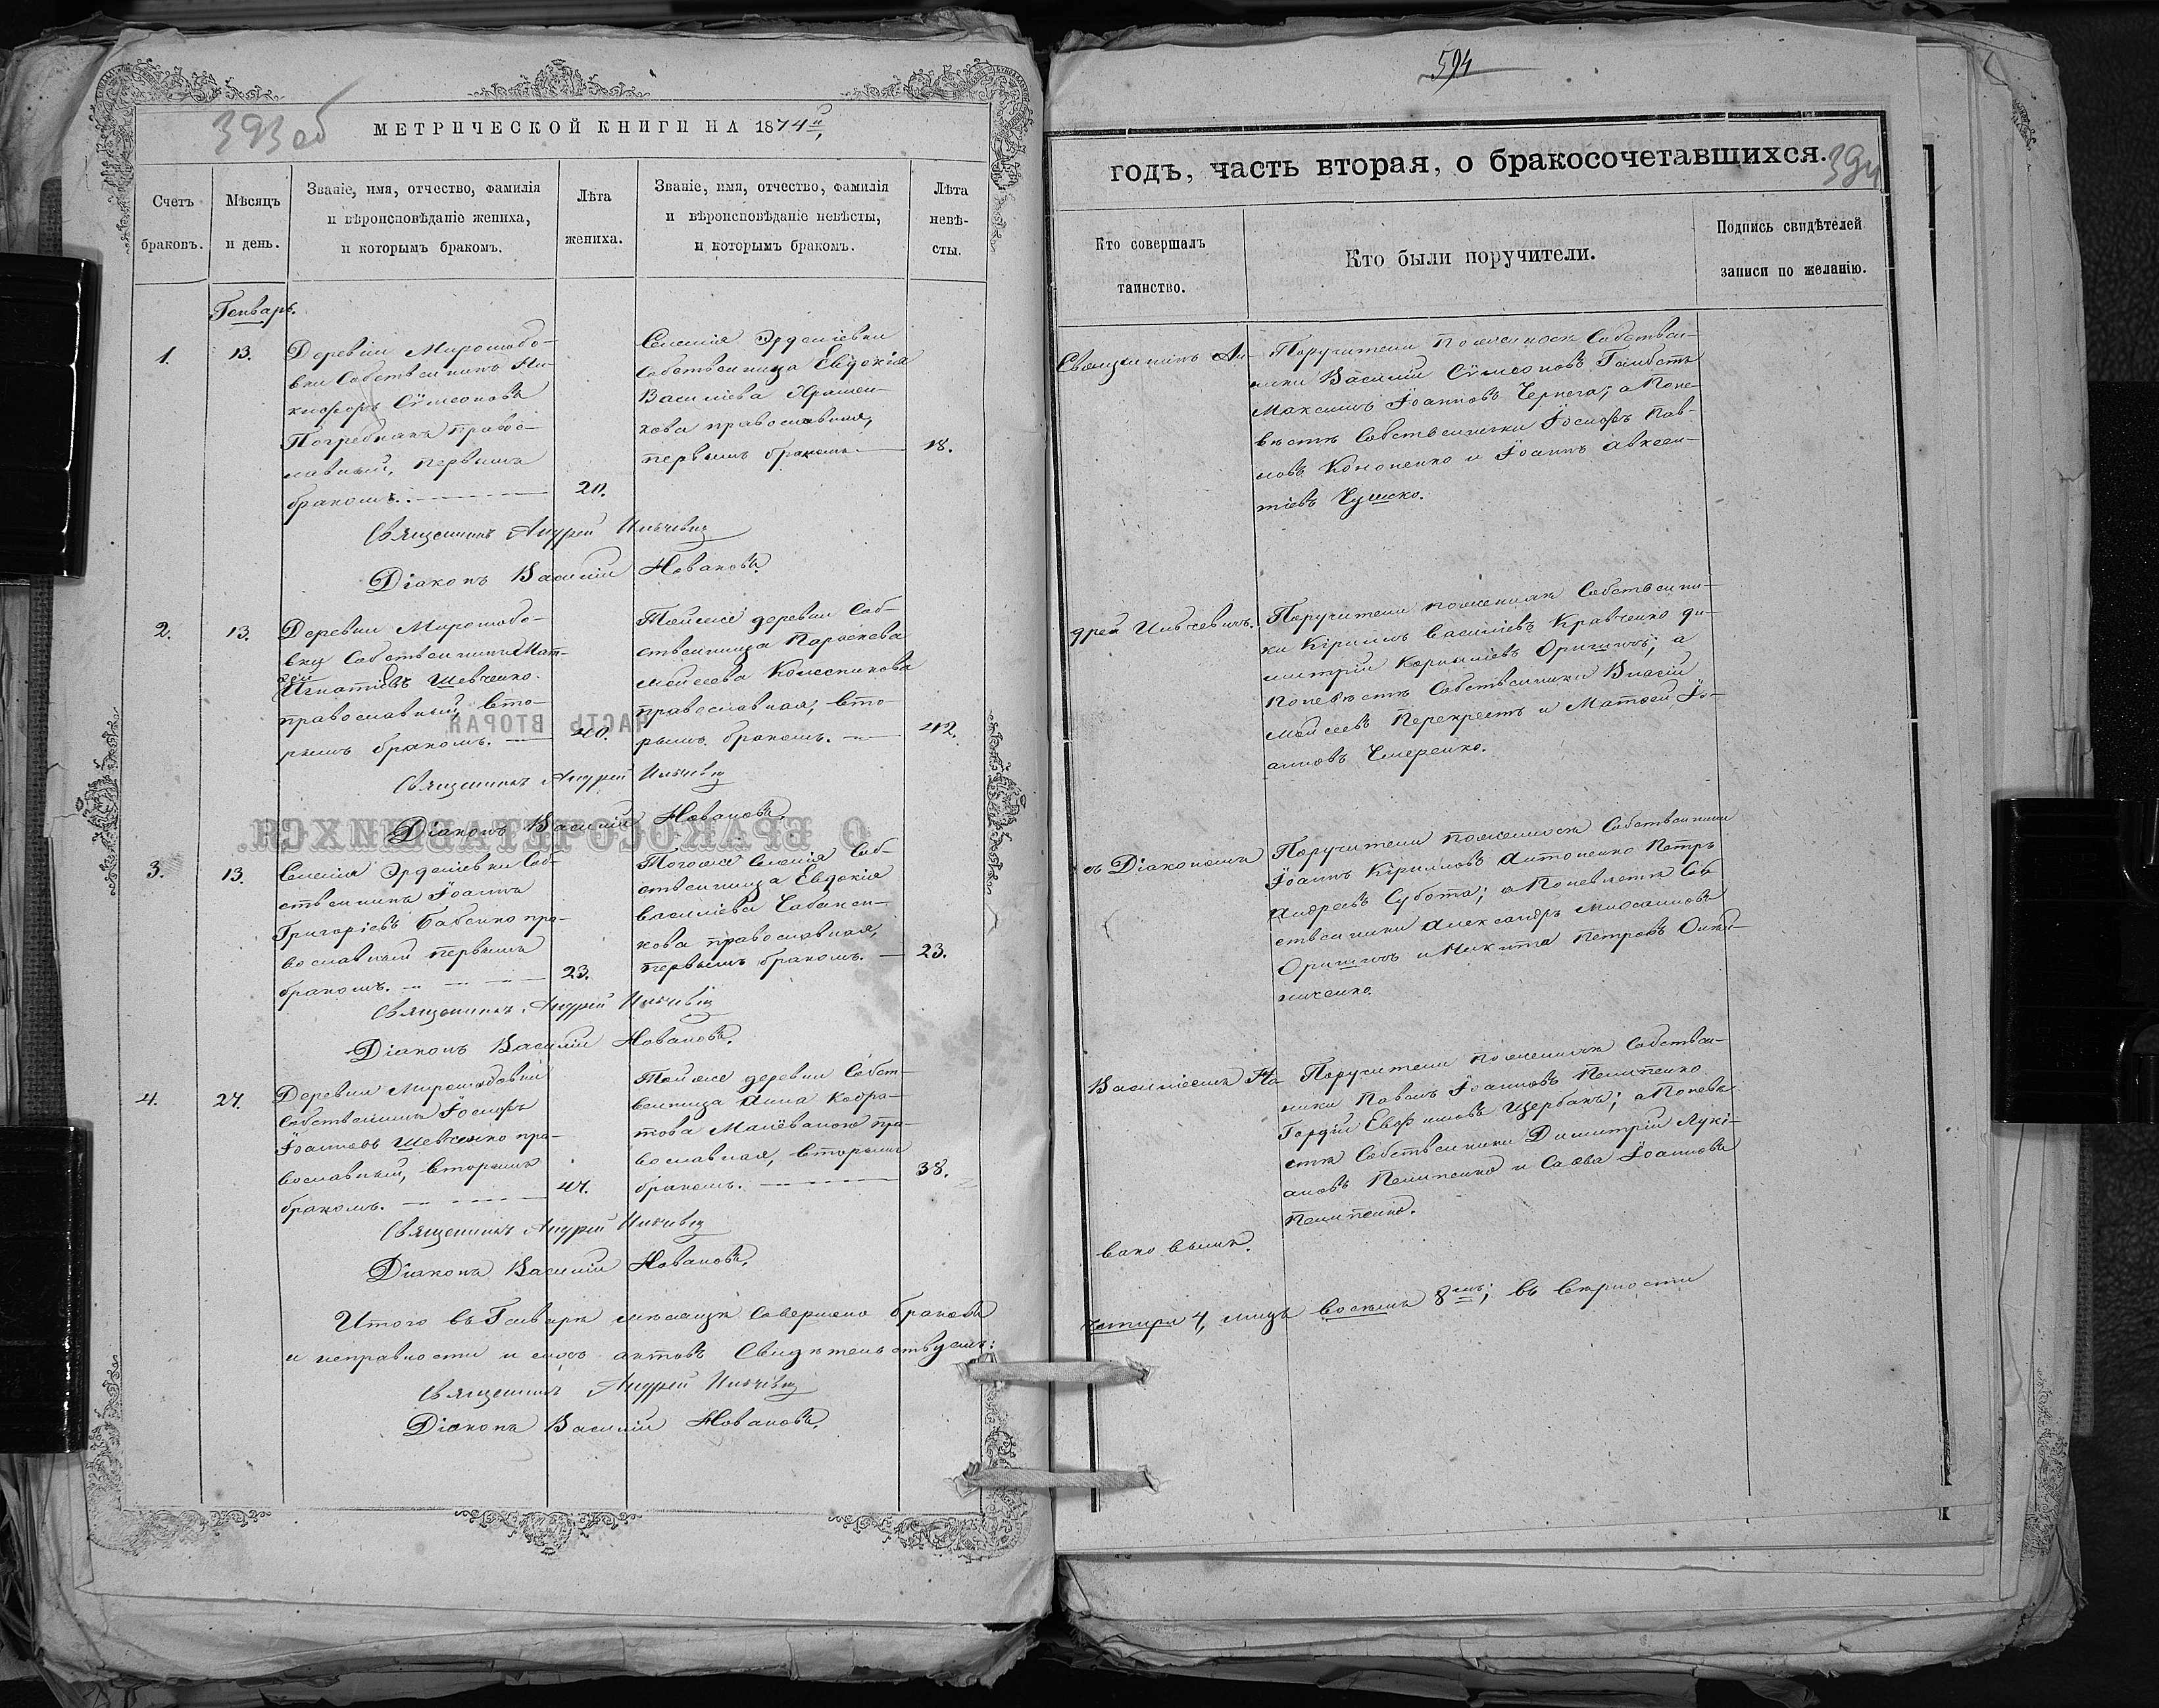 393 об
МЕТРИЧЕСКОЙ КНИГИ НА 1874й
Счетъ браковъ.
Мѣсяцъ и день.
Званіе, имя, отчество, фамилія
и вѣроисповѣданіе жениха,
и которымъ бракомъ.
Лѣта жениха.
Званіе, имя, отчество, фамилія
и вѣроисповѣданіе невѣсты,
и которымъ бракомъ.
Лѣта невѣ-
сты.
Генварь.
1.
13.
Деревни Мирошобо-
вки Собственникъ Ни-
кифоръ Сѵмеоновъ
Погребнякъ правос-
лавный, первымъ
бракомъ.
20.
Селенія Эрделіевки
Собственница Евдокія
Василіева
кова православная,
первымъ бракомъ
18.
Священникъ Андрей Ильчевич
Діаконъ Василій Новаковъ.
2.
13.
Деревни Мирошобо-
вки Собственникъ Мат-
фей
Игнатіевъ Шевченко.
православный, вто-
рымъ бракомъ.
40.
Тойже деревни Соб-
ственница Параскева
Моисеева Колесникова
православная, вто-
рымъ бракомъ.
42.
ЧАСТЬ ВТОРАЯ
Священникъ Андрей Ильчевич
О БРАКОСОЧЕТАВШИХСЯ.
Діаконъ Василій Новаковъ.
3.
13.
Селенія Эрделіевки Соб-
ственникъ Іоаннъ
Григоріевъ Бабенко пра-
вославный первымъ
бракомъ.
23.
Тогоже Селенія Соб-
ственница Евдокія
Василіева Чабанен-
кова православная,
первымъ бракомъ.
23.
Священникъ Андрей Ильчевич
Діаконъ Василій Новаковъ.
4.
27.
Деревни Мирошобовки
Собственникъ Іосифъ
Іоанновъ Шевченко пра-
вославный, вторымъ
бракомъ.
47.
Тойже деревни Собст-
венница Анна Кодра-
това Малёваного пра-
вославная, вторымъ
бракомъ.
38.
Священникъ Андрей Ильчевич
Діаконъ Василій Новаковъ.
Итого въ Генварѣ мѣсяцѣ Совершено браковъ
и исправности и сихъ актовъ Свидѣтельствуемъ:
Священникъ Андрей Ильчевич
Діаконъ Василій Новаковъ.
594
годъ, часть вторая, о бракосочетавшихся.
394
Кто совершалъ
таинство.
Кто были поручители.
Подпись свидѣтелей
записи по желанію.
Священникъ Ан-
дрей Ильчевичъ.
съ Діакономъ
Василіемъ Но-
ваковымъ.
Поручители по женихѣ Собствен-
ники Василій Сѵмеоновъ
Максимъ Іоанновъ Чернега; а по не-
вѣстѣ Собственники Іосифъ Пав-
ловъ Кононенко и Іоаннъ Авксен-
тіевъ Чушко.
Поручители по женихѣ Собственни-
ки Кірилъ Василіевъ Кравченко Ди-
митрій Корниліевъ Оришичъ; а
по невѣстѣ Собственники Власій
Моисеевъ Перекрестъ и Матѳей Іо-
анновъ Чмеренко.
Поручители по женихѣ Собственники
Іоаннъ Кірилловъ Антоненко Петръ
Андреевъ Субота; а по невѣстѣ Соб-
ственники Александръ
Оришичъ и Никита Петровъ
Поручители по женихѣ Собствен-
ники Павелъ Іоанновъ Пелипенко
Гордій Евфимовъ Щербакъ; а по невѣ-
стѣ Собственники Димитрій Лукі-
ановъ Пелипенко и Савва Іоанновъ
Пелипенко.
четыри 4, лицъ восемь 8мь; въ вѣрности